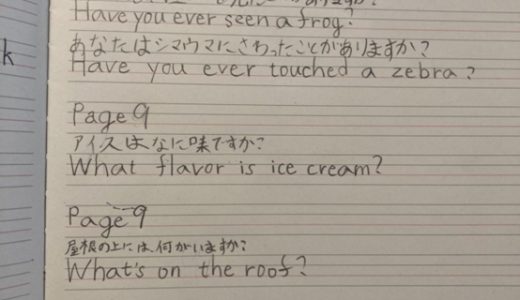 ありますか?
Have you ever seen a frog?
あなたはシマウマにさわったことがありますか?
k
Have you ever touched a zebra?
Page 9
アイスは、なに味ですか?
What flavor is ice cream?
Page 9
屋根の上には、何がいますか?
What's on the roof?